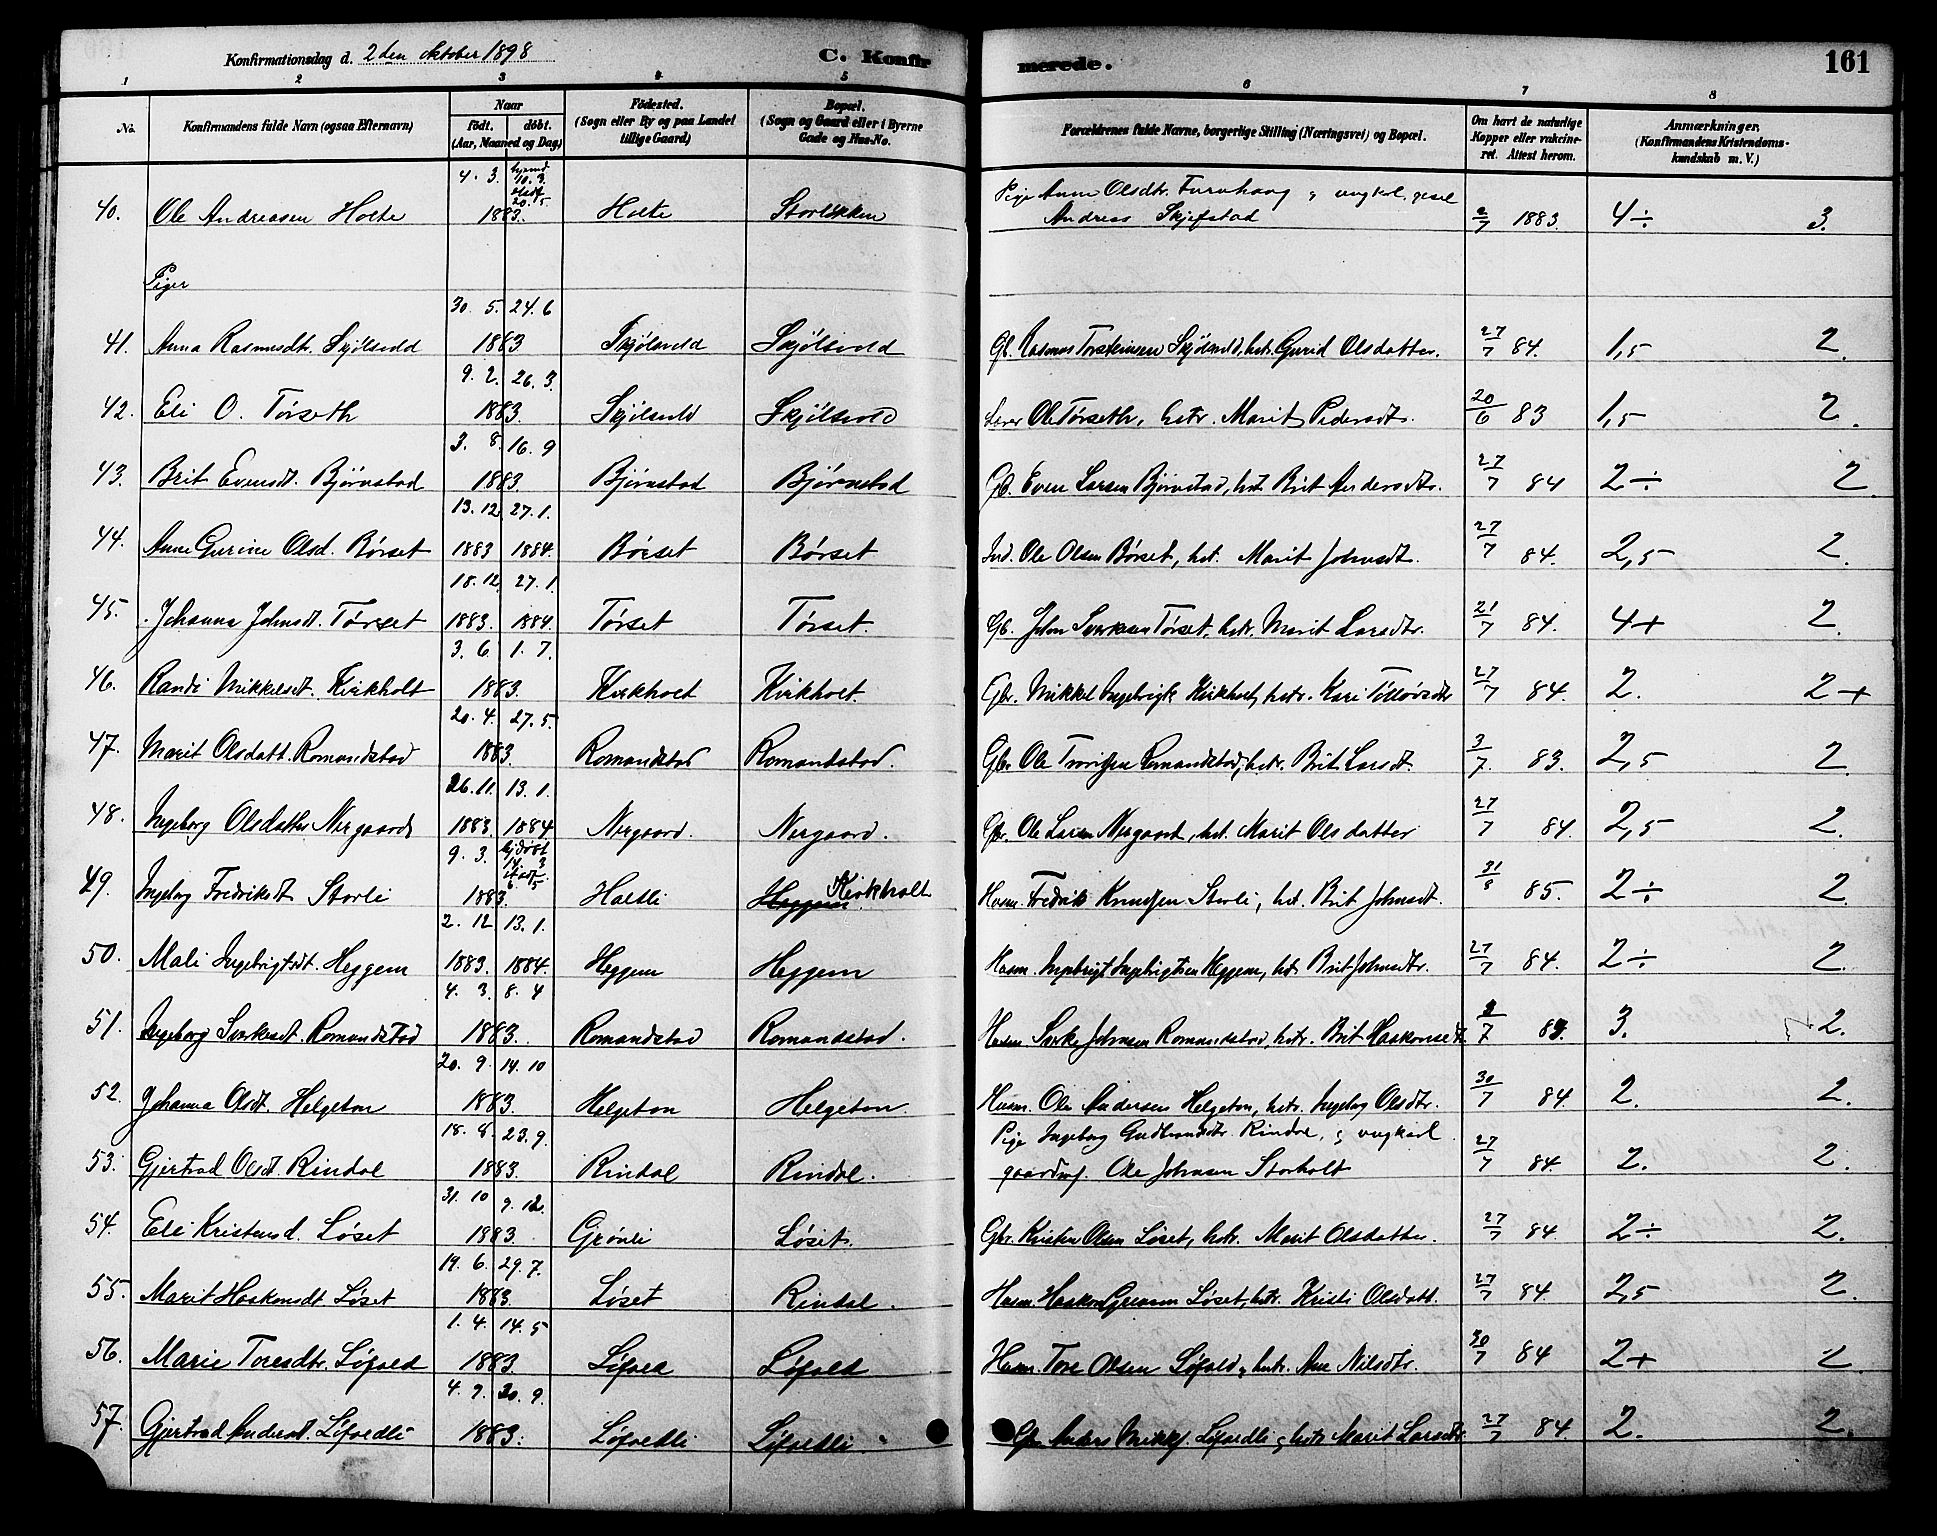 Konfirmationsdag d. 2den oktober 1898 C. Konfirmerede. 161
1 2 3 4 5 6 7 8
No. Konfirmandens fulde Navn (ogsaa Efternavn) Naar født. døbt. (Aar, Maaned og Dag) Fødested. (Sogn eller By og paa Landet tillige Gaard) Bopæl. (Sogn og Gaard eller i Byerne Gade og Hus-No. Forældrenes fulde Navne, borgerlige Stilling (Næringsvei) og Bopæl. Om havt de naturlige Kopper eller vakcineret. Attest herom. Anmærkninger. (Konfirmandens Kristendomskundskab m. V.)
4. 3. hjemd 10. 3. stadf. 20. 5 Pige Anne Olsdtr. Furuhaug og ungkarl
40. Ole Andreasen Holte 1883. Holte Storløkken Andreas Skjefstad 2/7 1883. 4 ÷ 3.
Piger
30. 5. 24. 6
41. Anna Rasmusdtr. Skjølsvold 1883 Skjølsvold Skjølsvold Gb. Rasmus Torsteinsen Skjølsvold, hstr. Gurid Olsdatter. 27/7 84. 1,5 2.
9. 2. 26. 3.
42. Eli O. Tørseth 1883. Skjølsvold Skjølsvold Lærer Ole Tørseth, hstr. Marit Pedersdt. 20/6 83 1,5 2.
3. 8. 16. 9
43. Brit Evensdt. Bjørnstad 1883. Bjørnstad Bjørnstad Gb. Even Larsen Bjørnstad, hst. Brit Andersdtr. 27/7 84 2 ÷ 2.
13. 12. 27. 1.
44. Anne Gurine Olsd. Børset 1883 1884. Børset Børset Ind. Ole Olsen Børset, hst. Marit Johnsdt. 27/7 84. 2,5 2.
18. 12. 27. 1.
45. Johanna Johnsdt. Tørset 1883. 1884. Tørset Tørset. Gb. John Sverksen Tørset, hstr. Marit Larsdtr. 21/7 84. 4 + 2.
3. 6. 1. 7.
46. Randi Mikkelsdt. Kirkholt 1883. Kirkholt Kirkholt. Gbr. Mikkel Ingebrigts Kirkholt, hstr. Kari Tollevsdtr 27/7 84. 2. 2 +
20. 4. 27. 5.
47. Marit Olsdatt. Romundstad 1883. Romundstad Romundstad. Gbr. Ole Romundstad, hstr. Brit Larsdt. 3/7. 83. 2,5 2.
26. 11. 13. 1.
48. Ingeborg Olsdatter Nergaard 1883. 1884 Nergaard. Nergaard. Gbr. Ole Larsen Nergaard, hst. Marit Olsdatter 27/7 84. 2,5 2.
9. 3. hjdøbt 14. 3 stadf. 6. 5
49. Ingeborg Fredriksdt Storli 1883. Holtli Heggem Kirkholt Husm. Fredrik Knudsen Storli, hst. Brit Johnsdt. 31/8 85. 2 ÷ 2.
2. 12 13. 1.
50. Mali Ingebrigtsdt. Heggem 1883. 1884. Heggem Heggem Husm. Ingebrigt Ingebrigtsen Heggem, hst. Brit Johnsdtr. 27/7 84. 2 ÷ 2.
4. 3. 8. 4
51. Ingeborg Sverkesdt. Romundstad 1883. Romundstad Romundstad. Husm. Sverke Johnsen Romundstad, hstr. Brit Haakonsdt. 2/7 83. 3. 2.
20. 9. 14. 10
52. Johanna Olsdt. Helgeton 1883. Helgeton Helgeton Husm. Ole Andersen Helgeton, hstr. Ingeborg Olsdtr. 30/7 84. 2. 2.
18. 8. 23. 9. Pige Ingeborg Gudbrandsdtr. Rindal, og ungkarl
53. Gjertrud Olsdt. Rindal 1883. Rindal Rindal. gaardmf. Ole Johnsen Storholt 27/7 84. 2. 2.
31. 10 9. 12.
54. Eli Kristensd. Løset 1883. Grønli Løset. Gbr. Kristen Olsen Løset, hstr. Marit Olsdatter. 27/7 84. 2 ÷ 2.
19. 6. 29. 7.
55. Marit Haakonsdt. Løset 1883. Løset Rindal. Husm. Haakon Løset, hstr. Kristi Olsdatt. 27/7 84. 2,5 2.
1. 4. 14. 5
56. Marie Toresdtr. Løfald 1883. Løfald Løfald Husm. Tore Olsen Løfald, hstr. Ane Nilsdtr. 30/7 84 2 + 2
4. 9. 30. 9.
57. Gjertrud Andersdt. Løfaldli 1883. Løfaldli Løfaldli Gbr. Anders Mikk. Løfaldli og hstr. Marit Larsdtr. 27/7 84. 2. 2.